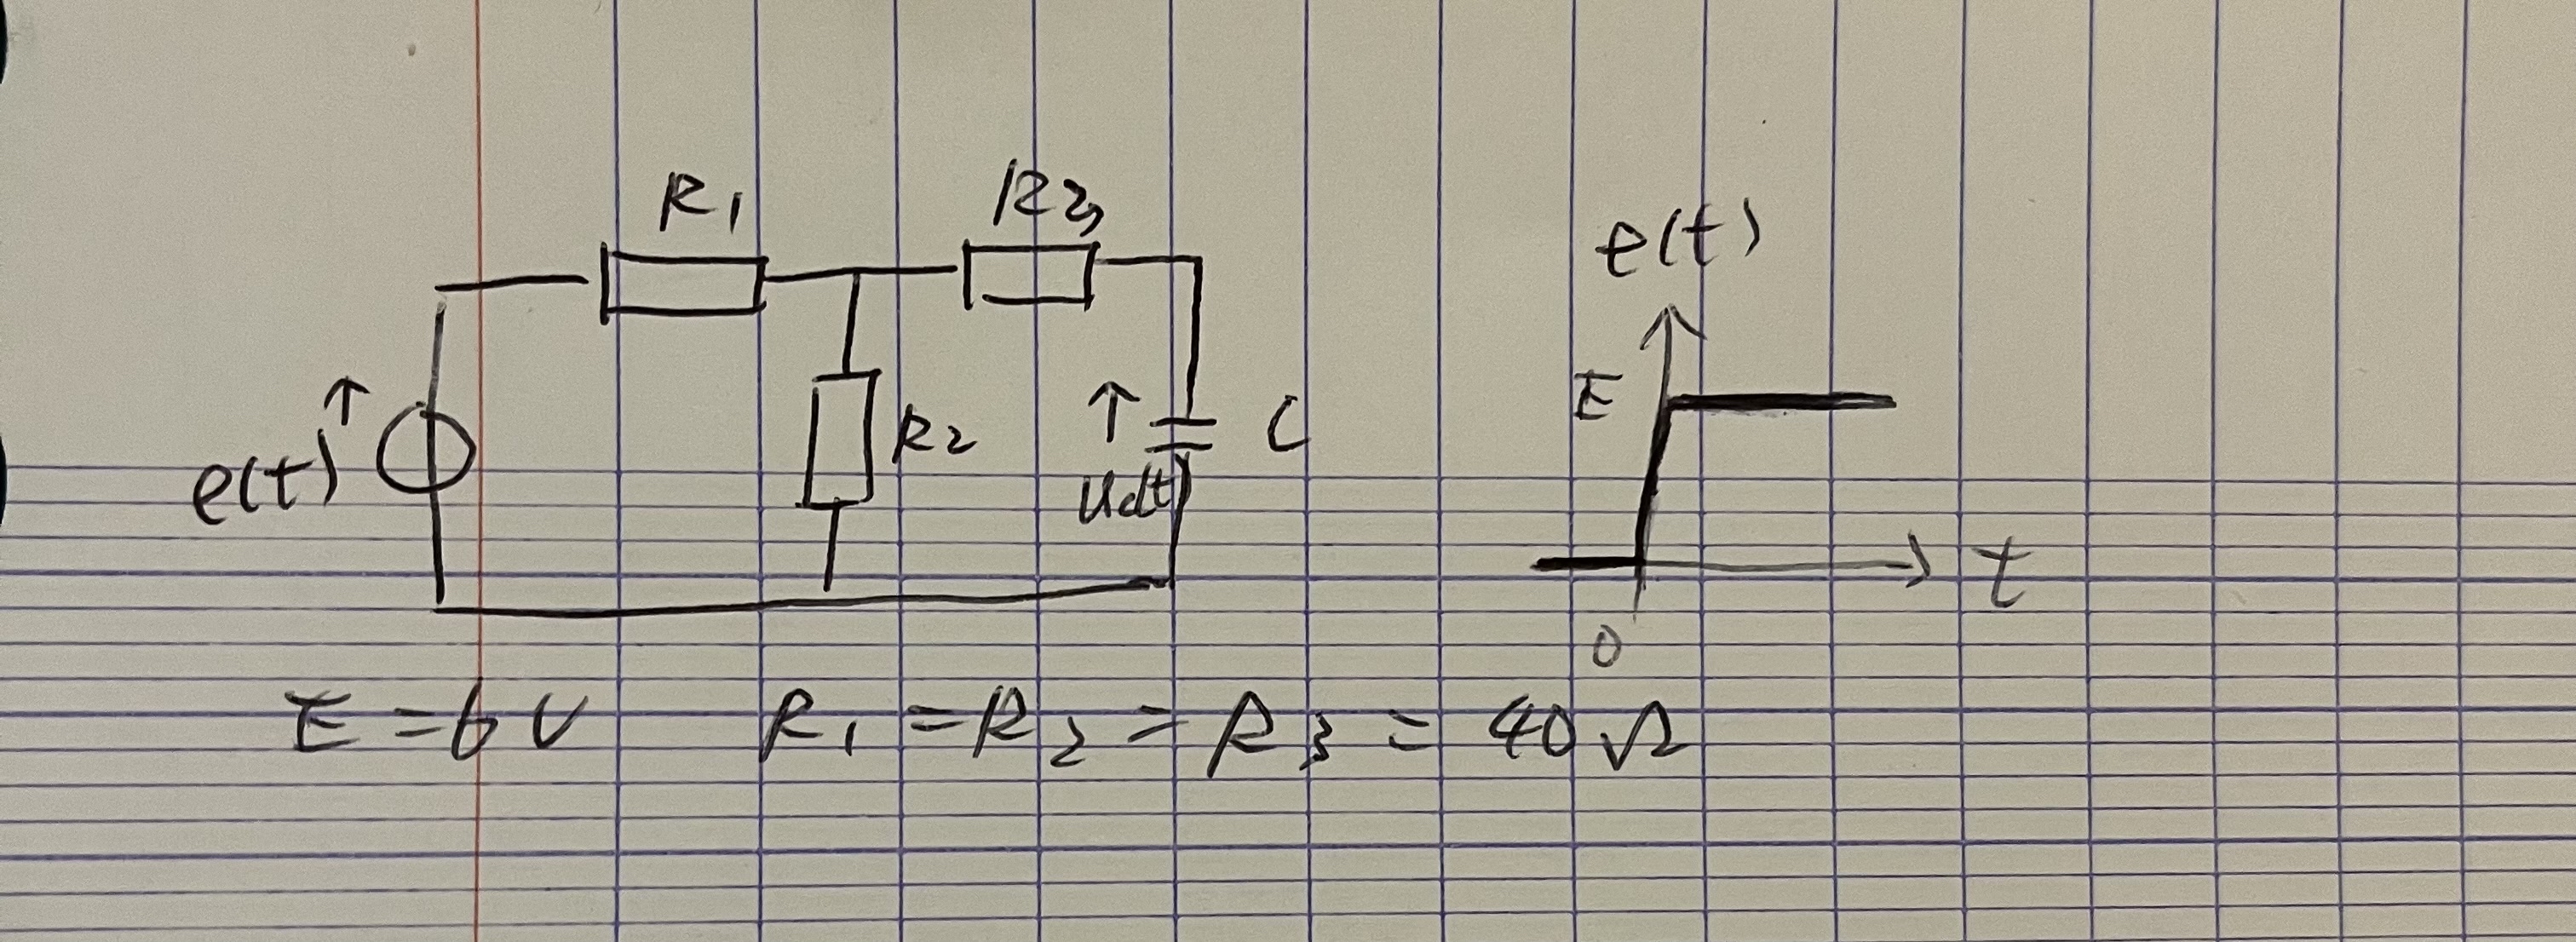 R1
R3
e(t)
E
R2
C
e(t)
Uc(t)
t
0
E = 6V R1 = R2 = R3 = 40 Ω